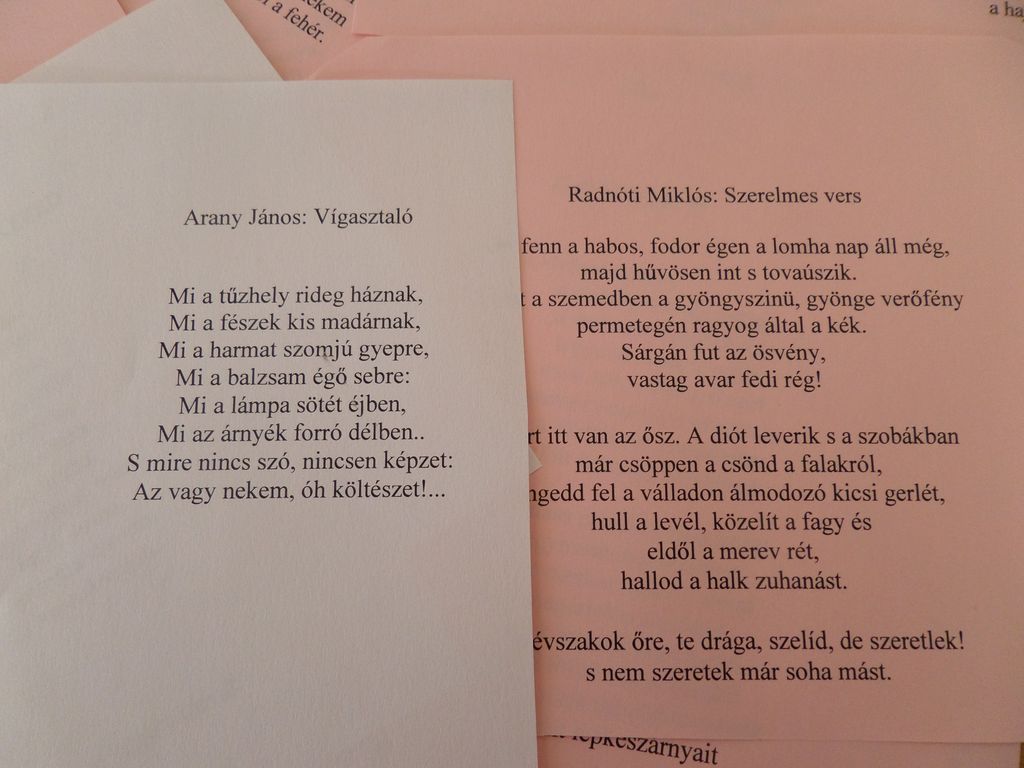 nekem
a fehér.
a ha
Arany János: Vígasztaló
Mi a tűzhely rideg háznak,
Mi a fészek kis madárnak,
Mi a harmat szomjú gyepre,
Mi a balzsam égő sebre:
Mi a lámpa sötét éjben,
Mi az árnyék forró délben..
S mire nincs szó, nincsen képzet:
Az vagy nekem, óh költészet!...
Radnóti Miklós: Szerelmes vers
fenn a habos, fodor égen a lomha nap áll még,
majd hűvösen int s tovaúszik.
t a szemedben a gyöngyszinü, gyönge verőfény
permetegén ragyog által a kék.
Sárgán fut az ösvény,
vastag avar fedi rég!
rt itt van az ősz. A diót leverik s a szobákban
már csöppen a csönd a falakról,
ngedd fel a válladon álmodozó kicsi gerlét,
hull a levél, közelít a fagy és
eldől a merev rét,
hallod a halk zuhanást.
évszakok őre, te drága, szelíd, de szeretlek!
s nem szeretek már soha mást.
lepkeszárnyait